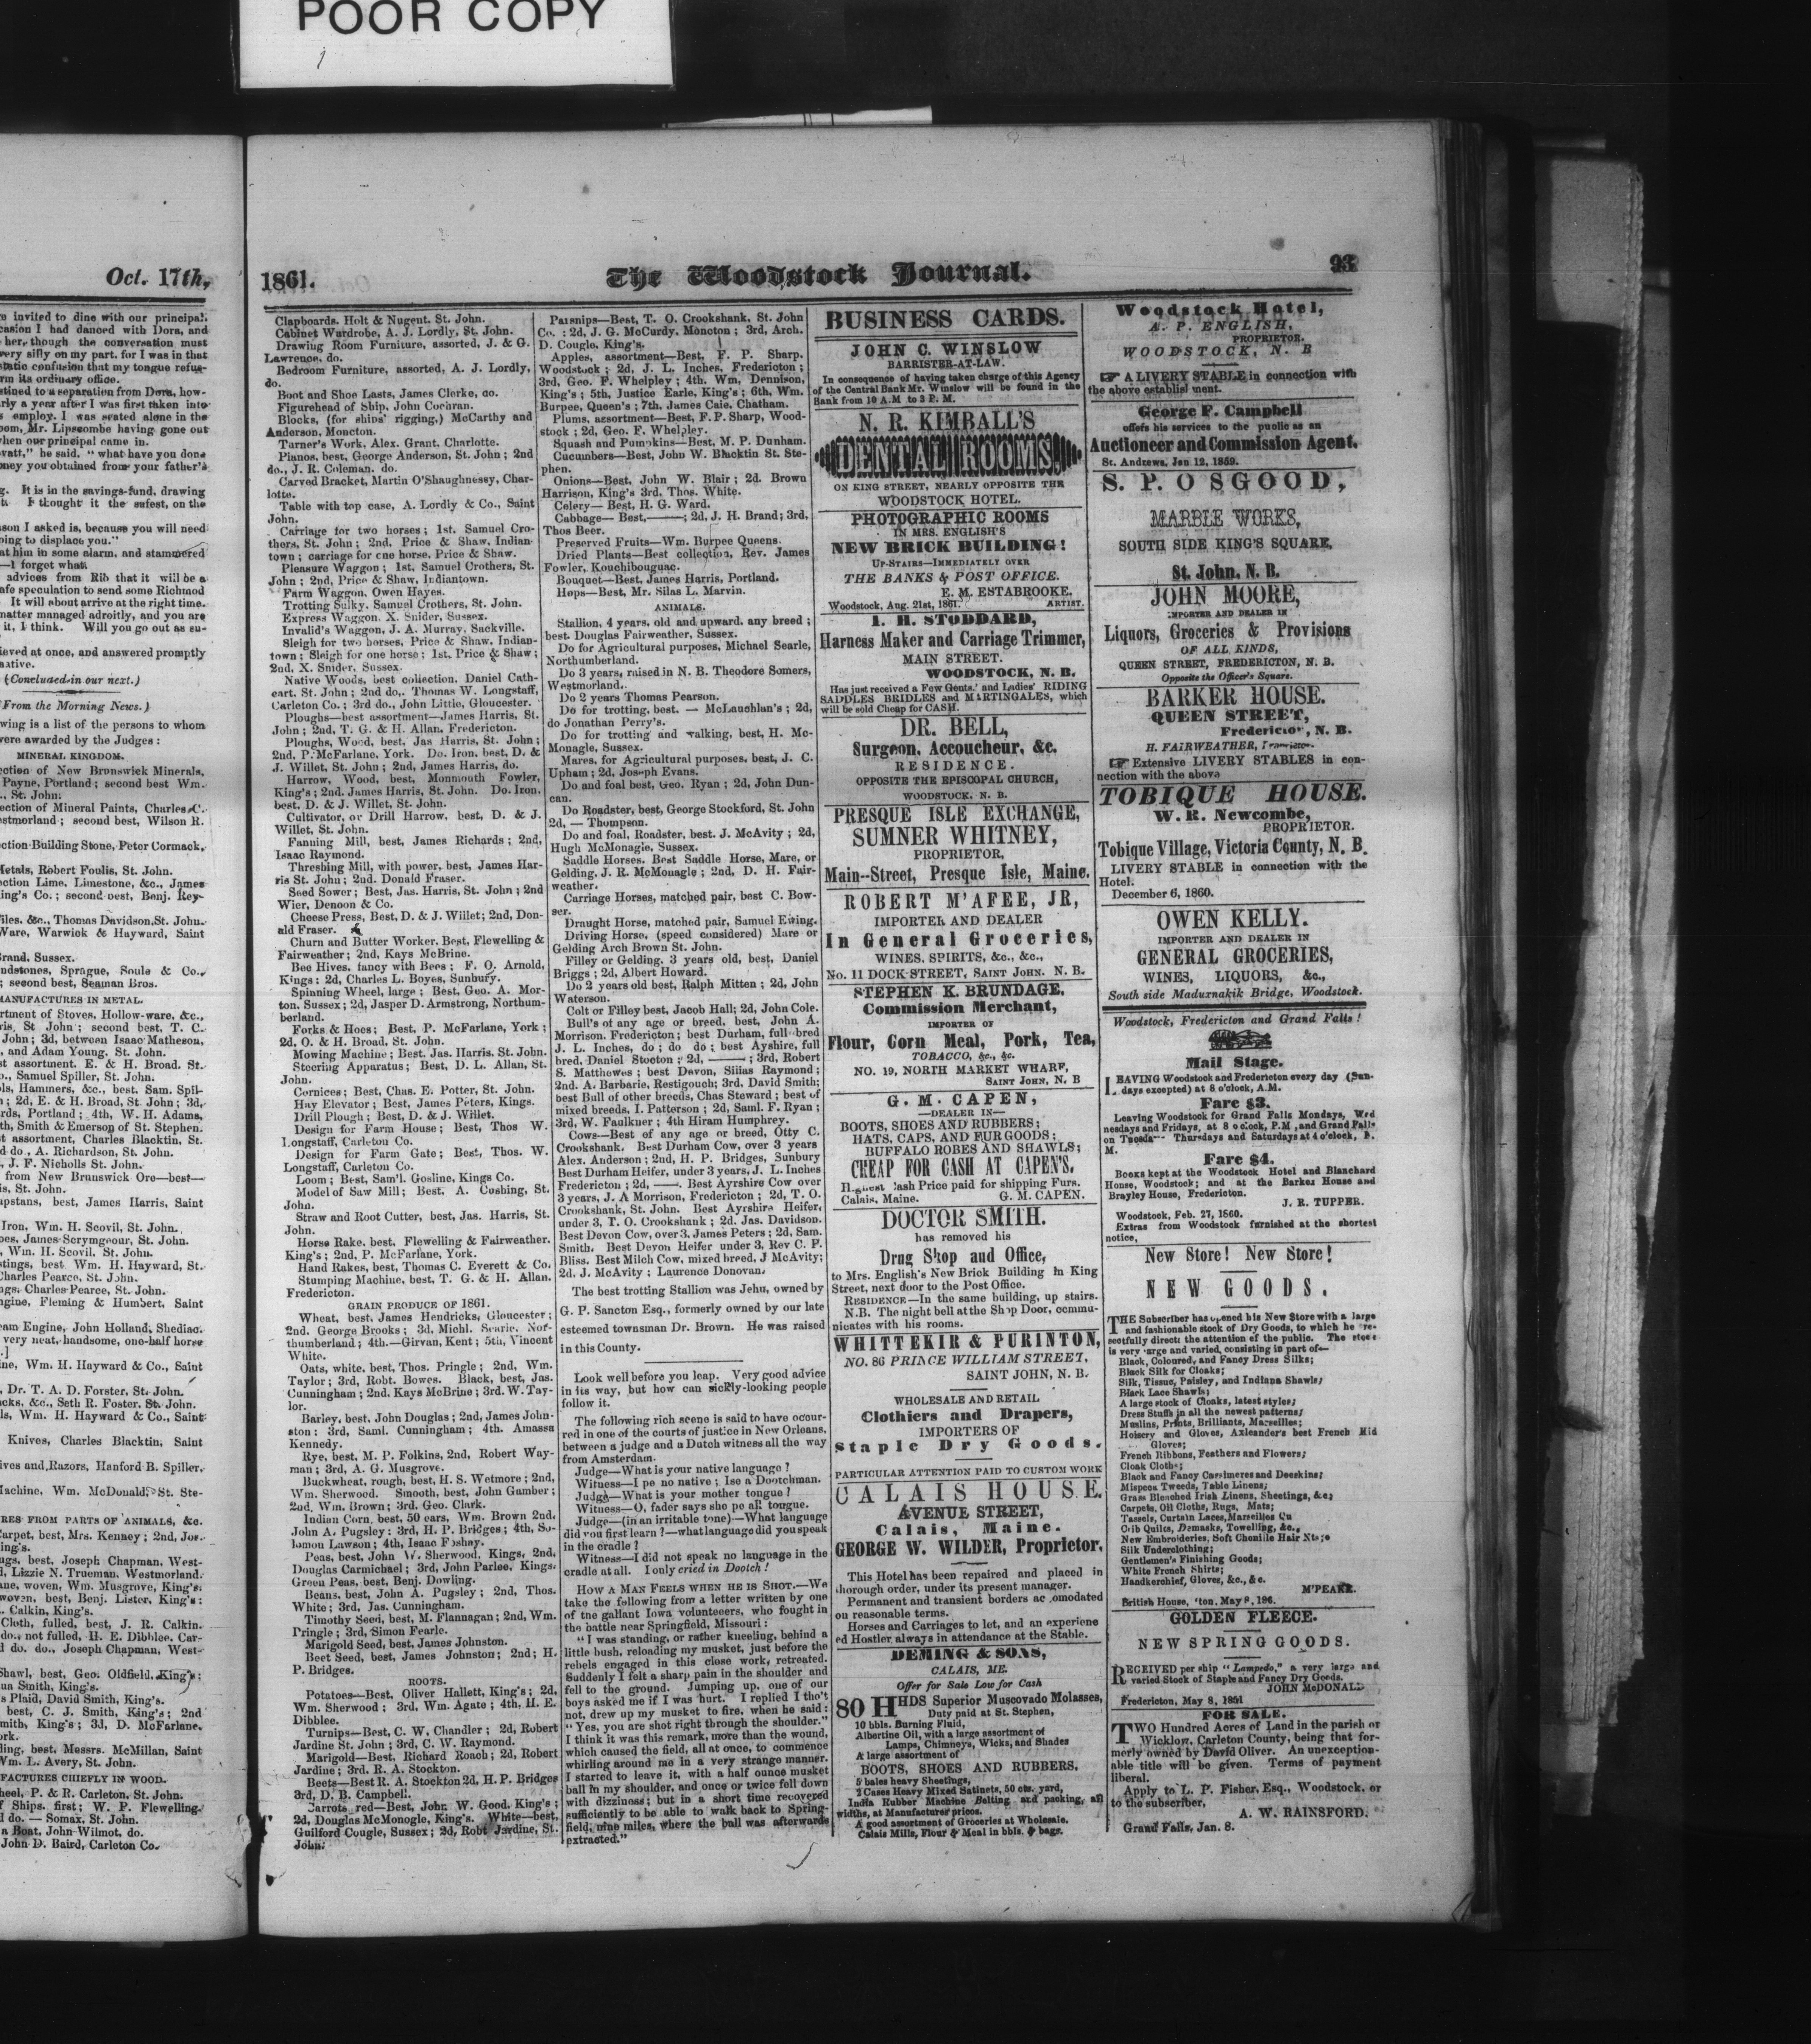 POOR COPY
Oct. 17th,
e invited to dine with our principal.
casion I had danced with Dora, and
her, though the conversation must
very silly on my part, for I was in that
static confusion that my tongue refus-
rm its ordinary office.
stined to a separation from Dora, how-
rly a year after I was first taken into
s employ. I was seated alone in the
oom, Mr. Lipscombe having gone out
when our principal came in.
vatt," he said, "what have you done
ney you obtained from your father's
g. It is in the savings-fund, drawing
t. I thought it the safest, on the
son I asked is, because you will need
oing to displace you."
at him in some alarm, and stammered
—I forget what.
advices from Rib that it will be a
afe speculation to send some Richmod
It will about arrive at the right time.
matter managed adroitly, and you are
it, I think. Will you go out as su-
ieved at once, and answered promptly
native.
(Concluded in our next.)
From the Morning News.)
wing is a list of the persons to whom
were awarded by the Judges:
MINERAL KINGDOM.
ection of New Brunswick Minerals,
Payne, Portland; second best Wm.
., St. John.
ection of Mineral Paints, Charles C.
estmorland; second best, Wilson R.
ction Building Stone, Peter Cormack,
Metals, Robert Foulis, St. John.
ection Lime, Limestone, &c., James
ing's Co.; second best, Benj. Rey-
iles. &c., Thomas Davidson, St. John.
Ware, Warwick & Hayward, Saint
Brand, Sussex.
ndstones, Sprague, Soule & Co.,
; second best, Seaman Bros.
MANUFACTURES IN METAL.
rtment of Stoves, Hollow-ware, &c.,
ris, St John; second best, T. C.
John; 3d, between Isaac Matheson,
, and Adam Young, St. John.
st assortment, E. & H. Broad, St.
o., Samuel Spiller, St. John.
ols, Hammers, &c., best, Sam. Spil-
n; 2d, E. & H. Broad, St. John; 3d,
rds, Portland; 4th, W. H. Adams,
th, Smith & Emerson of St. Stephen.
t assortment, Charles Blacktin, St.
d do., A. Richardson, St. John.
, J. F. Nicholls St. John.
from New Brunswick Ore—best—
is, St. John.
apstans, best, James Harris, Saint
Iron, Wm. H. Scovil, St. John.
oes, James Scrymgeour, St. John.
, Wm. H. Scovil, St. John.
stings, best Wm. H. Hayward, St.
Charles Pearce, St. John.
ngs, Charles Pearce, St. John.
ngine, Fleming & Humbert, Saint
eam Engine, John Holland, Shediac.
very neat, handsome, one-half horse
.]
ine, Wm. H. Hayward & Co., Saint
, Dr. T. A. D. Forster, St. John.
cks, &c., Seth R. Foster, St. John.
ls, Wm. H. Hayward & Co., Saint
Knives, Charles Blacktin, Saint
ives and Razors, Hanford B. Spiller.
Machine, Wm. McDonald, St. Ste-
RES FROM PARTS OF ANIMALS, &c.
Carpet, best, Mrs. Kenney; 2nd, Jos.
ing's.
ugs, best, Joseph Chapman, West-
l, Lizzie N. Trueman, Westmorland.
ane, woven, Wm. Musgrove, King's.
woven, best, Benj. Lister, King's:
. Calkin, King's.
Cloth, fulled, best, J. R. Calkin.
do., not fulled, H. E. Dibblee, Car-
d do. do., Joseph Chapman, West-
Shawl, best, Geo. Oldfield, King's;
ua Smith, King's.
s Plaid, David Smith, King's.
best, C. J. Smith, King's; 2nd
mith, King's; 3d, D. McFarlane,
ork.
ling, best, Messrs. McMillan, Saint
Wm. L. Avery, St. John.
FACTURES CHIEFLY IN WOOD.
heel, P. & R. Carleton, St. John.
f Ships, first; W. P. Flewelling.
l do. — Somax, St. John.
a Boat, John Wilmot, do.
John D. Baird, Carleton Co.
1861. The Woodstock Journal. 93
Clapboards. Holt & Nugent. St. John.
Cabinet Wardrobe, A. J. Lordly, St. John.
Drawing Room Furniture, assorted, J. & G.
Lawrence, do.
Bedroom Furniture, assorted, A. J. Lordly,
do.
Boot and Shoe Lasts, James Clerke, do.
Figurehead of Ship, John Cochran.
Blocks, (for ships' rigging,) McCarthy and
Anderson, Moncton.
Turner's Work, Alex. Grant, Charlotte.
Pianos, best, George Anderson, St. John; 2nd
do., J. R. Coleman, do.
Carved Bracket, Martin O'Shaughnessy, Char-
lotte.
Table with top case, A. Lordly & Co., Saint
John.
Carriage for two horses; 1st. Samuel Cro-
thers, St. John; 2nd, Price & Shaw, Indian-
town; carriage for one horse, Price & Shaw.
Pleasure Waggon; 1st, Samuel Crothers, St.
John; 2nd, Price & Shaw, Indiantown.
Farm Waggon, Owen Hayes.
Trotting Sulky, Samuel Crothers, St. John.
Express Waggon, X. Snider, Sussex.
Invalid's Waggon, J. A. Murray, Sackville.
Sleigh for two horses, Price & Shaw, Indian-
town; Sleigh for one horse; 1st, Price & Shaw;
2nd, X. Snider, Sussex.
Native Woods, best collection, Daniel Cath-
cart, St. John; 2nd do., Thomas W. Longstaff,
Carleton Co.; 3rd do., John Little, Gloucester.
Ploughs—best assortment—James Harris, St.
John; 2nd, T. G. & H. Allan, Fredericton.
Ploughs, Wood, best, Jas Harris, St. John;
2nd, P. McFarlane, York. Do. Iron, best, D. &
J. Willet, St. John; 2nd, James Harris, do.
Harrow, Wood, best, Monmouth Fowler,
King's; 2nd. James Harris, St. John. Do. Iron,
best, D. & J. Willet, St. John.
Cultivator, or Drill Harrow, best, D. & J.
Willet, St. John.
Fanning Mill, best, James Richards; 2nd,
Isaac Raymond.
Threshing Mill, with power, best, James Har-
ris St. John; 2nd. Donald Fraser.
Seed Sower; Best, Jas. Harris, St. John; 2nd
Wier, Denoon & Co.
Cheese Press, Best, D. & J. Willet; 2nd, Don-
ald Fraser.
Churn and Butter Worker. Best, Flewelling &
Fairweather; 2nd, Kays McBrine.
Bee Hives, fancy with Bees; F. O. Arnold,
Kings: 2d, Charles L. Boyes, Sunbury.
Spinning Wheel, large; Best, Geo. A. Mor-
ton, Sussex; 2d, Jasper D. Armstrong, Northum-
berland.
Forks & Hoes; Best, P. McFarlane, York;
2d, O. & H. Broad, St. John.
Mowing Machine; Best. Jas. Harris, St. John.
Steering Apparatus; Best, D. L. Allan, St.
John.
Cornices; Best, Chas. E. Potter, St. John.
Hay Elevator; Best, James Peters, Kings.
Drill Plough; Best, D. & J. Willet.
Design for Farm House; Best, Thos W.
Longstaff, Carleton Co.
Design for Farm Gate; Best, Thos. W.
Longstaff, Carleton Co.
Loom; Best, Sam'l. Gosline, Kings Co.
Model of Saw Mill; Best, A. Cushing, St.
John.
Straw and Root Cutter, best, Jas. Harris, St.
John.
Horse Rake, best, Flewelling & Fairweather.
King's; 2nd, P. McFarlane, York.
Hand Rakes, best, Thomas C. Everett & Co.
Stumping Machine, best, T. G. & H. Allan,
Fredericton.
GRAIN PRODUCE OF 1861.
Wheat, best, James Hendricks, Gloucester;
2nd. George Brooks; 3d, Michl. Searle, Nor-
thumberland; 4th.—Girvan, Kent; 5th, Vincent
White.
Oats, white, best, Thos. Pringle; 2nd, Wm.
Taylor; 3rd, Robt. Bowes. Black, best, Jas.
Cunningham; 2nd, Kays McBrine; 3rd. W. Tay-
lor.
Barley, best, John Douglas; 2nd, James John-
ston: 3rd, Saml. Cunningham; 4th. Amassa
Kennedy.
Rye, best, M. P. Folkins, 2nd, Robert Way-
man; 3rd, A. G. Musgrove.
Buckwheat, rough, best, H. S. Wetmore; 2nd,
Wm. Sherwood. Smooth, best, John Gamber;
2nd, Wm. Brown; 3rd. Geo. Clark.
Indian Corn, best, 50 ears, Wm. Brown 2nd,
John A. Pugsley: 3rd, H. P. Bridges; 4th, So-
lomon Lawson; 4th, Isaac Foshay.
Peas, best, John W. Sherwood, Kings, 2nd,
Douglas Carmichael; 3rd, John Parlee, Kings.
Green Peas, best, Benj. Dowling.
Beans, best, John A. Pugsley; 2nd, Thos.
White; 3rd, Jas. Cunningham.
Timothy Seed, best, M. Flannagan; 2nd, Wm.
Pringle; 3rd, Simon Fearle.
Marigold Seed, best, James Johnston.
Beet Seed, best, James Johnston; 2nd; H.
P. Bridges.
ROOTS.
Potatoes—Best, Oliver Hallett, King's; 2d,
Wm. Sherwood; 3rd, Wm. Agate; 4th, H. E.
Dibblee.
Turnips—Best, C. W. Chandler; 2d, Robert
Jardine St. John; 3rd, C. W. Raymond.
Marigold—Best, Richard Roach; 2d, Robert
Jardine; 3rd. R. A. Stockton.
Beets—Best R. A. Stockton 2d, H. P. Bridges
3rd, D. B. Campbell.
Carrots red—Best, John W. Good, King's;
2d, Douglas McMonogle, King's. White—best,
Guilford Cougle, Sussex; 2d, Robt Jardine, St.
John.
Parsnips—Best, T. O. Crookshank, St. John
Co.: 2d, J. G. McCurdy, Moncton; 3rd, Arch.
D. Cougle, King's.
Apples, assortment—Best, F. P. Sharp.
Woodstock; 2d, J. L. Inches, Fredericton;
3rd, Geo. F. Whelpley; 4th. Wm, Dennison,
King's; 5th, Justice Earle, King's; 6th, Wm.
Burpee, Queen's; 7th, James Caie, Chatham.
Plums, assortment—Best, F. P. Sharp, Wood-
stock; 2d, Geo. F. Whelpley.
Squash and Pumpkins—Best, M. P. Dunham.
Cucumbers—Best, John W. Blacktin St. Ste-
phen.
Onions—Best, John W. Blair; 2d. Brown
Harrison, King's 3rd, Thos. White.
Celery—Best, H. G. Ward.
Cabbage—Best,———; 2d, J. H. Brand; 3rd,
Thos Beer.
Preserved Fruits—Wm. Burpee Queens.
Dried Plants—Best collection, Rev. James
Fowler, Kouchibouguac.
Bouquet—Best, James Harris, Portland.
Hops—Best, Mr. Silas L. Marvin.
ANIMALS.
Stallion, 4 years, old and upward, any breed;
best. Douglas Fairweather, Sussex.
Do for Agricultural purposes, Michael Searle,
Northumberland.
Do 3 years, raised in N. B. Theodore Somers,
Westmorland.
Do 2 years Thomas Pearson.
Do for trotting, best. — McLauchlan's; 2d,
do Jonathan Perry's.
Do for trotting and walking, best, H. Mc-
Monagle, Sussex.
Mares, for Agricultural purposes, best, J. C.
Upham; 2d, Joseph Evans.
Do and foal best, Geo. Ryan; 2d, John Dun-
can.
Do Roadster, best, George Stockford, St. John
2d, — Thompson.
Do and foal, Roadster, best. J. McAvity; 2d,
Hugh McMonagle, Sussex.
Saddle Horses. Best Saddle Horse, Mare, or
Gelding, J. R. McMonagle; 2nd, D. H. Fair-
weather.
Carriage Horses, matched pair, best C. Bow-
ser.
Draught Horse, matched pair, Samuel Ewing.
Driving Horse, (speed considered) Mare or
Gelding Arch Brown St. John.
Filley or Gelding. 3 years old, best, Daniel
Briggs; 2d, Albert Howard.
Do 2 years old best, Ralph Mitten; 2d, John
Waterson.
Colt or Filley best, Jacob Hall; 2d, John Cole.
Bull's of any age or breed, best, John A.
Morrison, Fredericton; best Durham, full bred
J. L. Inches, do; do do; best Ayshire, full
bred, Daniel Stocton; 2d, ———; 3rd, Robert
S. Matthewes; best Devon, Silias Raymond;
2nd. A. Barbarie, Restigouch; 3rd, David Smith;
best Bull of other breeds, Chas Steward; best of
mixed breeds, I. Patterson; 2d, Saml. F. Ryan;
3rd, W. Faulkner; 4th Hiram Humphrey.
Cows—Best of any age or breed, Otty C.
Crookshank. Best Durham Cow, over 3 years
Alex. Anderson; 2nd, H. P. Bridges, Sunbury
Best Durham Heifer, under 3 years, J. L. Inches
Fredericton; 2d, ——. Best Ayrshire Cow over
3 years, J. A Morrison, Fredericton; 2d, T. O.
Crookshank, St. John. Best Ayrshire Heifer,
under 3, T. O. Crookshank; 2d. Jas. Davidson.
Best Devon Cow, over 3, James Peters; 2d, Sam.
Smith. Best Devon Heifer under 3, Rev C. P.
Bliss. Best Milch Cow, mixed breed, J McAvity;
2d. J. McAvity; Laurence Donovan.
The best trotting Stallion was Jehu, owned by
G. P. Sancton Esq., formerly owned by our late
esteemed townsman Dr. Brown. He was raised
in this County.
Look well before you leap. Very good advice
in its way, but how can sickly-looking people
follow it.
The following rich scene is said to have occur-
red in one of the courts of justice in New Orleans,
between a judge and a Dutch witness all the way
from Amsterdam.
Judge—What is your native language?
Witness—I pe no native; Ise a Dootchman.
Judge—What is your mother tongue?
Witness—O, fader says she pe all tongue.
Judge—(in an irritable tone)—What language
did you first learn?—what language did you speak
in the cradle?
Witness—I did not speak no language in the
cradle at all. I only cried in Dootch!
HOW A MAN FEELS WHEN HE IS SHOT.—We
take the following from a letter written by one
of the gallant Iowa volunteeers, who fought in
the battle near Springfield, Missouri:
"I was standing, or rather kneeling, behind a
little bush, reloading my musket, just before the
rebels engaged in this close work, retreated.
Suddenly I felt a sharp pain in the shoulder and
fell to the ground. Jumping up, one of our
boys asked me if I was hurt. I replied I tho't
not, drew up my musket to fire, when he said:
"Yes, you are shot right through the shoulder."
I think it was this remark, more than the wound,
which caused the field, all at once, to commence
whirling around me in a very strange manner.
I started to leave it, with a half ounce musket
ball in my shoulder, and once or twice fell down
with dizziness; but in a short time recovered
sufficiently to be able to walk back to Spring-
field, nine miles, where the ball was afterwards
extracted."
BUSINESS CARDS.
JOHN C. WINSLOW
BARRISTER-AT-LAW.
In consequence of having taken charge of this Agency
of the Central Bank Mr. Winslow will be found in the
Bank from 10 A.M to 3 P. M.
N. R. KIMBALL'S
DENTAL ROOMS
ON KING STREET, NEARLY OPPOSITE THE
WOODSTOCK HOTEL.
PHOTOGRAPHIC ROOMS
IN MRS. ENGLISH'S
NEW BRICK BUILDING!
UP-STAIRS—IMMEDIATELY OVER
THE BANKS & POST OFFICE.
E. M. ESTABROOKE,
Woodstock, Aug. 21st, 1861. ARTIST.
I. H. STODDARD,
Harness Maker and Carriage Trimmer,
MAIN STREET.
WOODSTOCK, N. B.
Has just received a Few Gents.' and Ladies' RIDING
SADDLES BRIDLES and MARTINGALES, which
will be sold Cheap for CASH.
DR. BELL,
Surgeon, Accoucheur, &c.
RESIDENCE.
OPPOSITE THE EPISCOPAL CHURCH,
WOODSTOCK, N. B.
PRESQUE ISLE EXCHANGE,
SUMNER WHITNEY,
PROPRIETOR,
Main--Street, Presque Isle, Maine.
ROBERT M'AFEE, JR,
IMPORTER AND DEALER
In General Groceries,
WINES, SPIRITS, &c., &c.,
No. 11 DOCK STREET, SAINT JOHN. N. B.
STEPHEN K. BRUNDAGE,
Commission Merchant,
IMPORTER OF
Flour, Corn Meal, Pork, Tea,
TOBACCO, &c., &c.
NO. 19, NORTH MARKET WHARF,
SAINT JOHN, N. B
G. M. CAPEN,
—DEALER IN—
BOOTS, SHOES AND RUBBERS;
HATS, CAPS, AND FUR GOODS;
BUFFALO ROBES AND SHAWLS;
CHEAP FOR CASH AT CAPEN'S.
Highest Cash Price paid for shipping Furs.
Calais, Maine. G. M. CAPEN.
DOCTOR SMITH.
has removed his
Drug Shop and Office,
to Mrs. English's New Brick Building in King
Street, next door to the Post Office.
RESIDENCE—In the same building, up stairs.
N.B. The night bell at the Shop Door, commu-
nicates with his rooms.
WHITTEKIR & PURINTON,
NO. 86 PRINCE WILLIAM STREET,
SAINT JOHN, N. B.
WHOLESALE AND RETAIL
Clothiers and Drapers,
IMPORTERS OF
Staple Dry Goods.
PARTICULAR ATTENTION PAID TO CUSTOM WORK
CALAIS HOUSE
AVENUE STREET,
Calais, Maine.
GEORGE W. WILDER, Proprietor.
This Hotel has been repaired and placed in
thorough order, under its present manager.
Permanent and transient borders ac omodated
on reasonable terms.
Horses and Carriages to let, and an experienc
ed Hostler always in attendance at the Stable.
DEMING & SONS,
CALAIS, ME.
Offer for Sale Low for Cash
80 HHDS Superior Muscovado Molasses,
Duty paid at St. Stephen,
10 bbls. Burning Fluid,
Albertine Oil, with a large assortment of
Lamps, Chimneys, Wicks, and Shades
A large assortment of
BOOTS, SHOES AND RUBBERS.
5 bales heavy Sheetings,
2 Cases Heavy Mixed Satinets, 50 cts. yard,
India Rubber Machine Belting and packing, all
widths, at Manufacturer prices.
A good assortment of Groceries at Wholesale.
Calais Mills, Flour & Meal in bbls. & bags.
Woodstock Hotel,
A. P. ENGLISH,
PROPRIETOR.
WOODSTOCK, N. B
☞ A LIVERY STABLE in connection with
the above establisl ment.
George F. Campbell
offers his services to the public as an
Auctioneer and Commission Agent.
St. Andrews, Jan 12, 1859.
S. P. OSGOOD,
MARBLE WORKS,
SOUTH SIDE KING'S SQUARE,
St. John, N. B.
JOHN MOORE,
IMPORTER AND DEALER IN
Liquors, Groceries & Provisions
OF ALL KINDS,
QUEEN STREET, FREDERICTON, N. B.
Opposite the Officer's Square.
BARKER HOUSE.
QUEEN STREET,
Fredericton, N. B.
H. FAIRWEATHER, Proprietor.
☞ Extensive LIVERY STABLES in con-
nection with the above
TOBIQUE HOUSE.
W. R. Newcombe,
PROPRIETOR.
Tobique Village, Victoria County, N. B.
LIVERY STABLE in connection with the
Hotel.
December 6, 1860.
OWEN KELLY.
IMPORTER AND DEALER IN
GENERAL GROCERIES,
WINES, LIQUORS, &c.,
South side Maduxnakik Bridge, Woodstock.
Woodstock, Fredericton and Grand Falls!
Mail Stage.
LEAVING Woodstock and Fredericton every day (Sun-
days excepted) at 8 o'clock, A.M.
Fare $3.
Leaving Woodstock for Grand Falls Mondays, Wed
nesdays and Fridays, at 8 o'clock, P.M, and Grand Falls
on Tuesda-- Thursdays and Saturdays at 4 o'clock, P.
M.
Fare $4.
Books kept at the Woodstock Hotel and Blanchard
House, Woodstock; and at the Barker House and
Brayley House, Fredericton.
J. R. TUPPER.
Woodstock, Feb. 27, 1860.
Extras from Woodstock furnished at the shortest
notice,
New Store! New Store!
NEW GOODS.
THE Subscriber has opened his New Store with a large
and fashionable stock of Dry Goods, to which he res-
pectfully directs the attention of the public. The store
is very large and varied, consisting in part of—
Black, Coloured, and Fancy Dress Silks;
Black Silk for Cloaks;
Silk, Tissue, Paisley, and Indiana Shawls;
Black Lace Shawls;
A large stock of Cloaks, latest styles;
Dress Stuffs in all the newest patterns;
Muslins, Prints, Brilliants, Marseilles;
Hoisery and Gloves, Axleander's best French Kid
Gloves;
French Ribbons, Feathers and Flowers;
Cloak Cloths;
Black and Fancy Cassimeres and Deeskins;
Mispeca Tweeds, Table Linens;
Grass Bleached Irish Linens, Sheetings, &c;
Carpets, Oil Cloths, Rugs, Mats;
Tassels, Curtain Laces, Marseilles Qu
Crib Quilts, Demasks, Towelling, &c.,
New Embroideries, Soft Chenille Hair Nts;o
Silk Underclothing;
Gentlemen's Finishing Goods;
White French Shirts;
Handkerchief, Gloves, &c., &c.
M'PEAKE.
British House, 'ton, May 8, 186.
GOLDEN FLEECE.
NEW SPRING GOODS.
RECEIVED per ship "Lampedo," a very large and
varied Stock of Staple and Fancy Dry Goods.
JOHN McDONALD
Fredericton, May 8, 1861
FOR SALE.
TWO Hundred Acres of Land in the parish or
Wicklow, Carleton County, being that for-
merly owned by David Oliver. An unexception-
able title will be given. Terms of payment
liberal.
Apply to L. P. Fisher, Esq., Woodstock, or
to the subscriber,
A. W. RAINSFORD.
Grand Falls, Jan. 8.